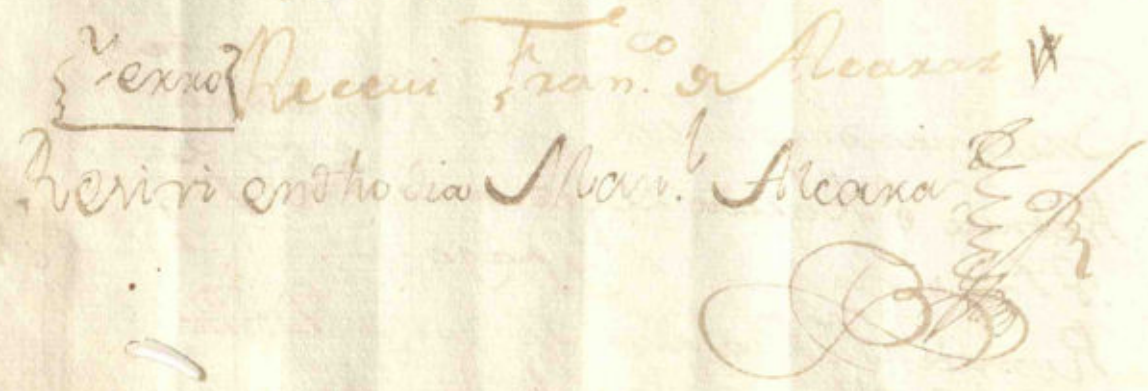 Yerro Receui Fran.co de Alcaraz
Resivi en dho dia Man.l Alcara